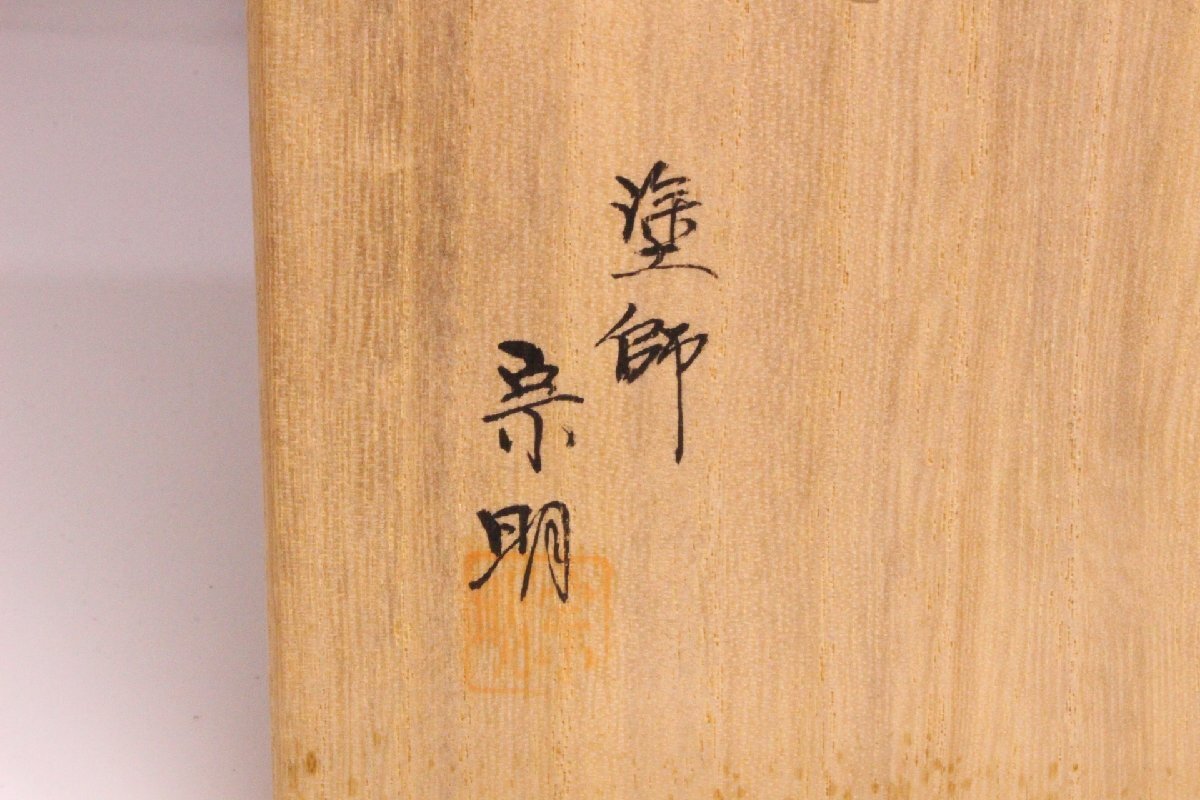 塗師
宗明